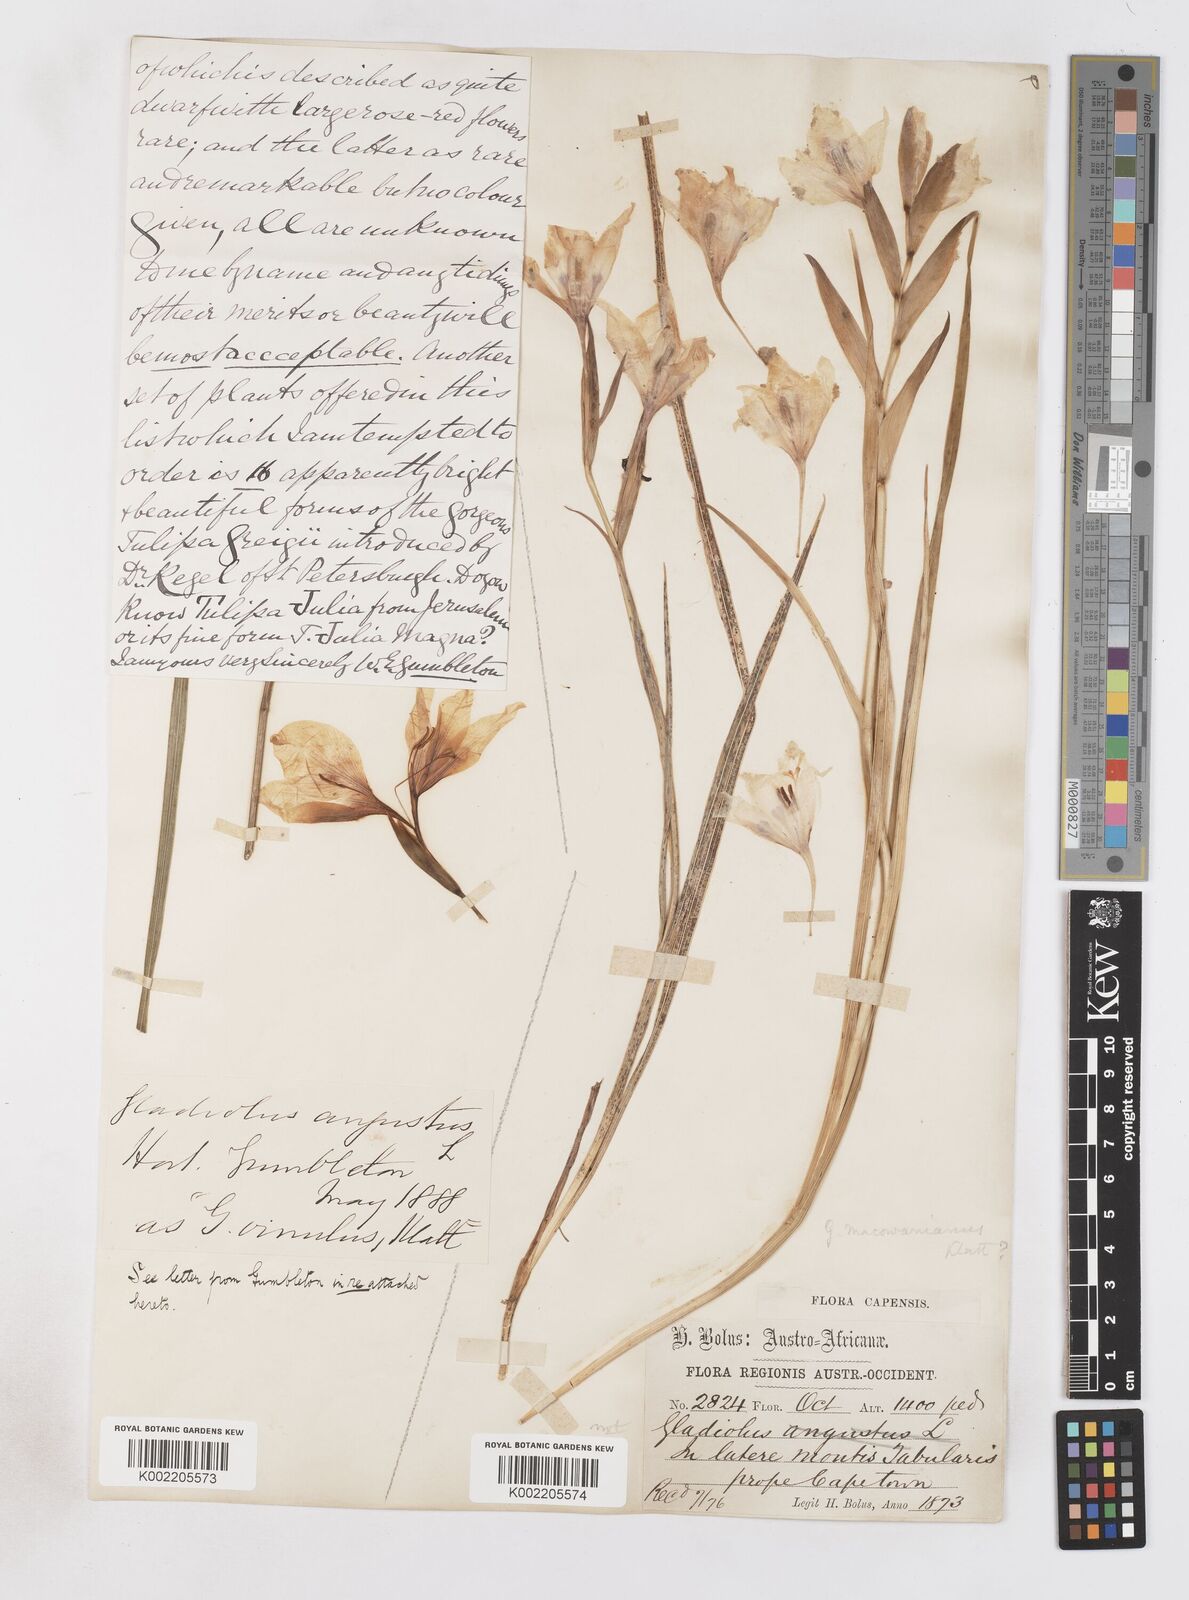 of which is described as quite
dwarf with large rose-red flowers
rare; and the latter as rare
and remarkable but no colour
given, all are unknown
to me by name and any tidings
of their merits or beauty will
be most acceptable. Another
set of plants offered in this
list which I am tempted to
order is 16 apparently bright
& beautiful forms of the gorgeous
Tulipa Greigii introduced by
Dr. Regel of St Petersburgh. Do you
know Tulipa Julia from Jerusalem
or its fine form T. Julia magna?
I am yours very sincerely W.E. Gumbleton
Gladiolus angustus
L
Hort. Gumbleton
May 1888
as "G. vinulus, Klatt"
See letter from Gumbleton in re attached
hereto.
ROYAL BOTANIC GARDENS KEW
K002205573
ROYAL BOTANIC GARDENS KEW
K002205574
G. macowanianus
Klatt?
FLORA CAPENSIS.
H. Bolus: Austro=Africanæ.
FLORA REGIONIS AUSTR.-OCCIDENT.
No. 2824 FLOR. Oct ALT. ped
Gladiolus angustus L
In latere montis Tabularis
prope Capetown
Recd 9/76 Legit H. Bolus, Anno 1873
inches
centimeters
Don Williams
M000827
Royal Botanic Gardens
Kew
0 1 2 3 4 5 6 7 8 9 10
cm
copyright reserved